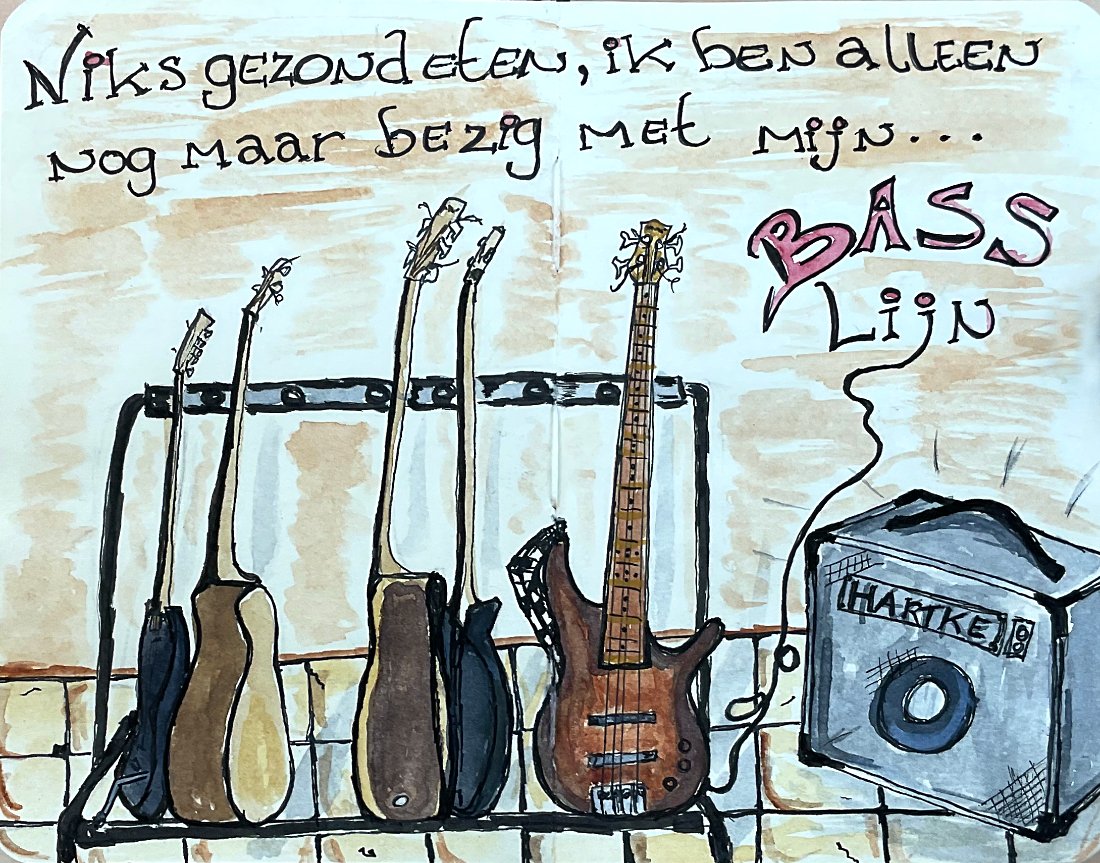 Niks gezond eten, ik ben alleen
nog maar bezig met mijn...
BASS
Lijn
HARTKE